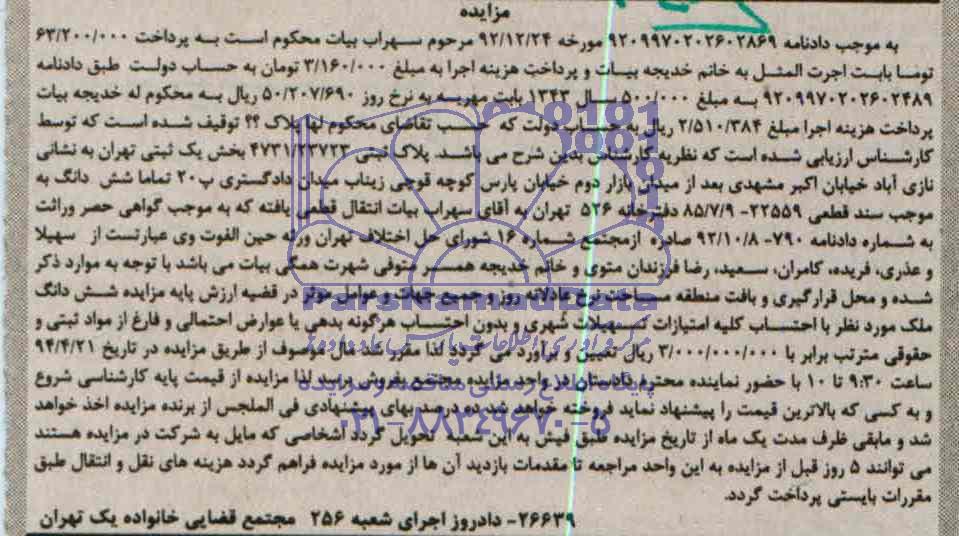 مزایده
به موجب دادنامه ۹۲۰۹۹۷۰۲۰۲۶۰۲۸۶۹ مورخه ۹۲/۱۲/۲۴ مرحوم سهراب بیات محکوم است به پرداخت ۶۳/۲۰۰/۰۰۰
توما بابت اجرت المثل به خانم خدیجه بیات و پرداخت هزینه اجرا به مبلغ ۳/۱۶۰/۰۰۰ تومان به حساب دولت طبق دادنامه
۹۲۰۹۹۷۰۲۰۲۶۰۲۴۸۹ به مبلغ ۵۰۰/۰۰۰ سال ۱۳۴۳ بابت مهریه به نرخ روز ۵۰/۲۰۷/۶۹۰ ریال به محکوم له خدیجه بیات
پرداخت هزینه اجرا مبلغ ۲/۵۱۰/۳۸۴ ریال به حساب دولت که حسب تقاضای محکوم لها پلاک ؟؟ توقیف شده است که توسط
کارشناس ارزیابی شده است که نظریه کارشناس بدین شرح می باشد. پلاک ثبتی ۴۷۳۱/۲۳۷۲۳ بخش یک ثبتی تهران به نشانی
نازی آباد خیابان اکبر مشهدی بعد از میدان بازار دوم خیابان پارس کوچه قوجی زیناب میدان دادگستری پ۲۰ تماما شش دانگ به
موجب سند قطعی ۲۲۵۵۹- ۸۵/۷/۹ دفترخانه ۵۲۶ تهران به آقای سهراب بیات انتقال قطعی یافته که به موجب گواهی حصر وراثت
به شماره دادنامه ۷۹۰- ۹۲/۱۰/۸ صادره ازمجتمع شماره ۱۶ شورای حل اختلاف تهران ورثه حین الفوت وی عبارتست از سهیلا
و عذری، فریده، کامران، سعید، رضا فرزندان متوی و خانم خدیجه همسر متوفی شهرت همگی بیات می باشد با توجه به موارد ذکر
شده و محل قرارگیری و بافت منطقه مساحت نرخ عادلانه روز و جمیع جهات و عوامل موثر در قضیه ارزش پایه مزایده شش دانگ
ملک مورد نظر با احتساب کلیه امتیازات تسهیلات شهری و بدون احتساب هرگونه بدهی یا عوارض احتمالی و فارغ از مواد ثبتی و
حقوقی مترتب برابر با ۳/۰۰۰/۰۰۰/۰۰۰ ریال تعیین و برآورد می گردد لذا مقرر شد مال موصوف از طریق مزایده در تاریخ ۹۴/۴/۲۱
ساعت ۹:۳۰ تا ۱۰ با حضور نماینده محترم دادستان در واحد مزایده مجتمع بفروش برسد لذا مزایده از قیمت پایه کارشناسی شروع
و به کسی که بالاترین قیمت را پیشنهاد نماید فروخته خواهد شد ده درصد بهای پیشنهادی فی الملجس از برنده مزایده اخذ خواهد
شد و مابقی ظرف مدت یک ماه از تاریخ مزایده طبق فیش به این شعبه تحویل گردد اشخاصی که مایل به شرکت در مزایده هستند
می توانند ۵ روز قبل از مزایده به این واحد مراجعه تا مقدمات بازدید آن ها از مورد مزایده فراهم گردد هزینه های نقل و انتقال طبق
مقررات بایستی پرداخت گردد.
۲۶۶۳۹- دادروز اجرای شعبه ۲۵۶ مجتمع قضایی خانواده یک تهران
ParsNamadData
۰۲۱-۸۸۳۴۹۶۷۰-۵